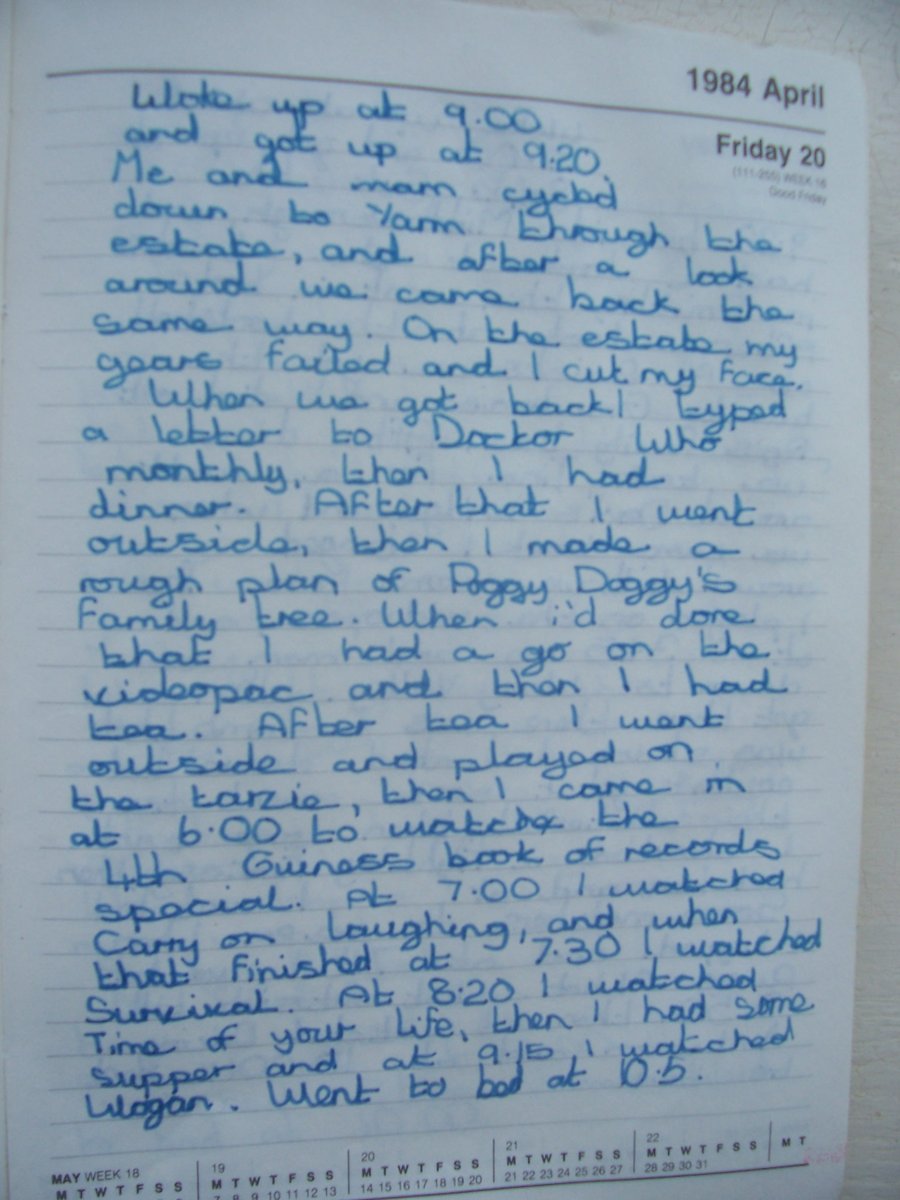 1984 April
Friday 20
(111-255) WEEK 16
Good Friday
Woke up at 9.00
and got up at 9.20.
Me and mam cycled
down to Yarm through the
estate, and after a look
around we came back the
same way. On the estate my
gears failed and I cut my face.
When we got back I typed
a letter to Doctor Who
monthly, then I had
dinner. After that I went
outside, then I made a
rough plan of Poggy Doggy's
Family tree. When i'd done
that I had a go on the
videopac and then I had
tea. After tea I went
outside and played on
the tarzie, then I came in
at 6.00 to watch the
4th Guiness book of records
special. At 7.00 I watched
Carry on Laughing, and when
that finished at 7.30 I watched
Survival. At 8.20 I watched
Time of your Life, then I had some
supper and at 9.15 I watched
Wogan. Went to bed at 10.5.
MAY WEEK 18 19 20 21 22
M T W T F S S M T W T F S S M T W T F S S M T W T F S S M T W T F S S M T
7 8 9 10 11 12 13 14 15 16 17 18 19 20 21 22 23 24 25 26 27 28 29 30 31